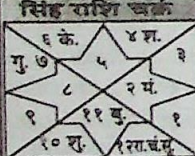 सिंह राशि चक्र
६ के. ४ श.
गु. ७ ५ ३
८ २ मं.
९ ११ बु. १
१० शु. १२रा.चं.सू.